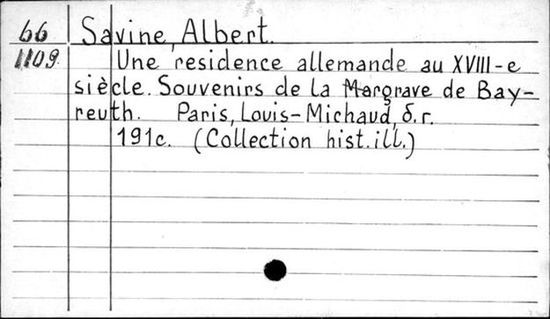 66 Savine, Albert.
1109. Une residence allemande au XVIII-e
siècle. Souvenirs de la Margrave de Bay-
reuth. Paris, Louis-Michaud, б.г.
191c. (Collection hist. ill.)